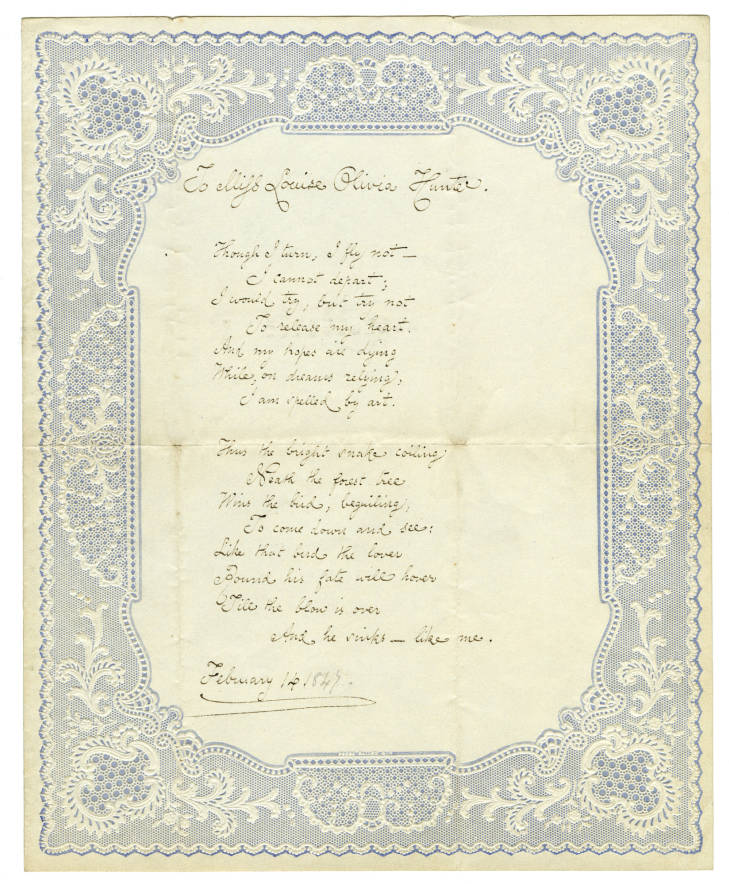 To Miss Louise Olivia Hunter.
Though I turn, I fly not —
I cannot depart;
I would try, but try not
To release my heart.
And my hopes are dying
While, on dreams relying,
I am spelled by art.
Thus the bright snake coiling
Neath the forest tree
Wins the bird, beguiling,
To come down and see:
Like that bird the lover
Round his fate will hover
Till the blow is over
And he sinks — like me.
February 14 1847.